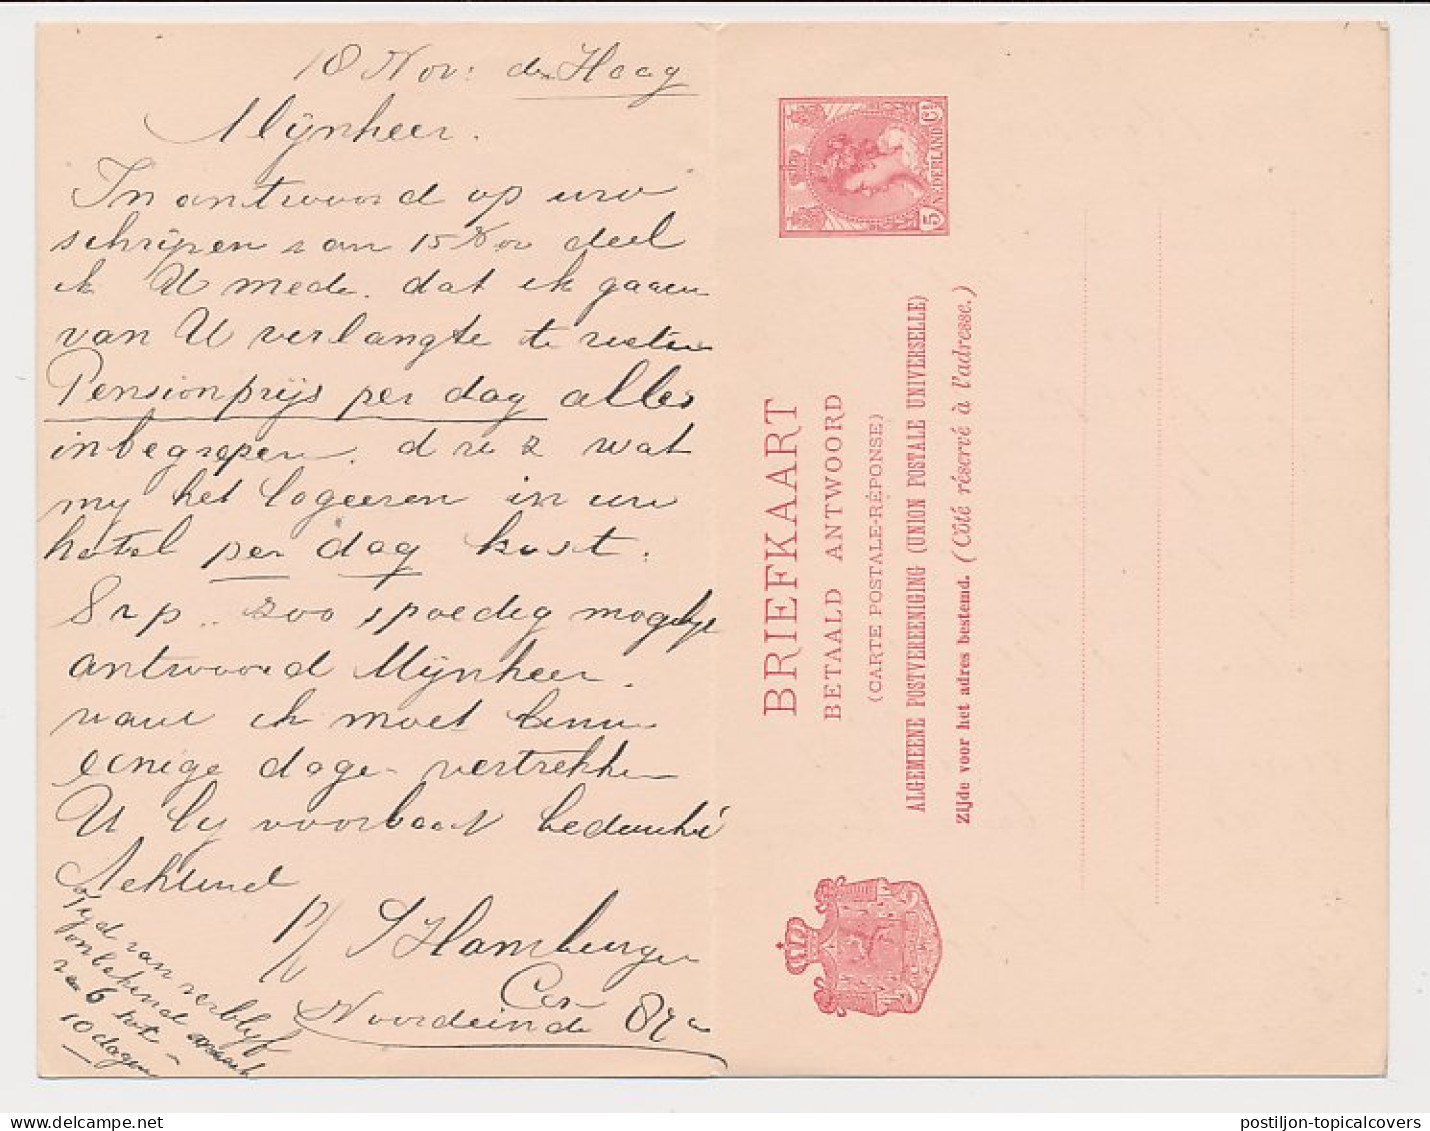 18 Nov: den Haag
Mijnheer.
In antwoord op uw
schrijven van 15 Nov deel
ik U mede. dat ik gaarne
van U verlangte te weten
Pensionprijs per dag alles
inbegrepen. d w z wat
my het logeeren in uw
hotel per dag kost.
S v p .. zoo spoedig mogelijk
antwoord Mijnheer.
want ik moet binnen
eenige dagen vertrekken
U by voorbaat bedankt
Achtend
P/ S Hamburger
Noordeinde 87a
Tijd van verblijf
onbekend
van 6 tot
10 dagen
5 NEDERLAND Ct
BRIEFKAART
BETAALD ANTWOORD
(CARTE POSTALE-RÉPONSE)
ALGEMEENE POSTVEREENIGING (UNION POSTALE UNIVERSELLE)
Zijde voor het adres bestemd. (Côté réservé à l'adresse.)
postiljon-topicalcovers
delcampe.net